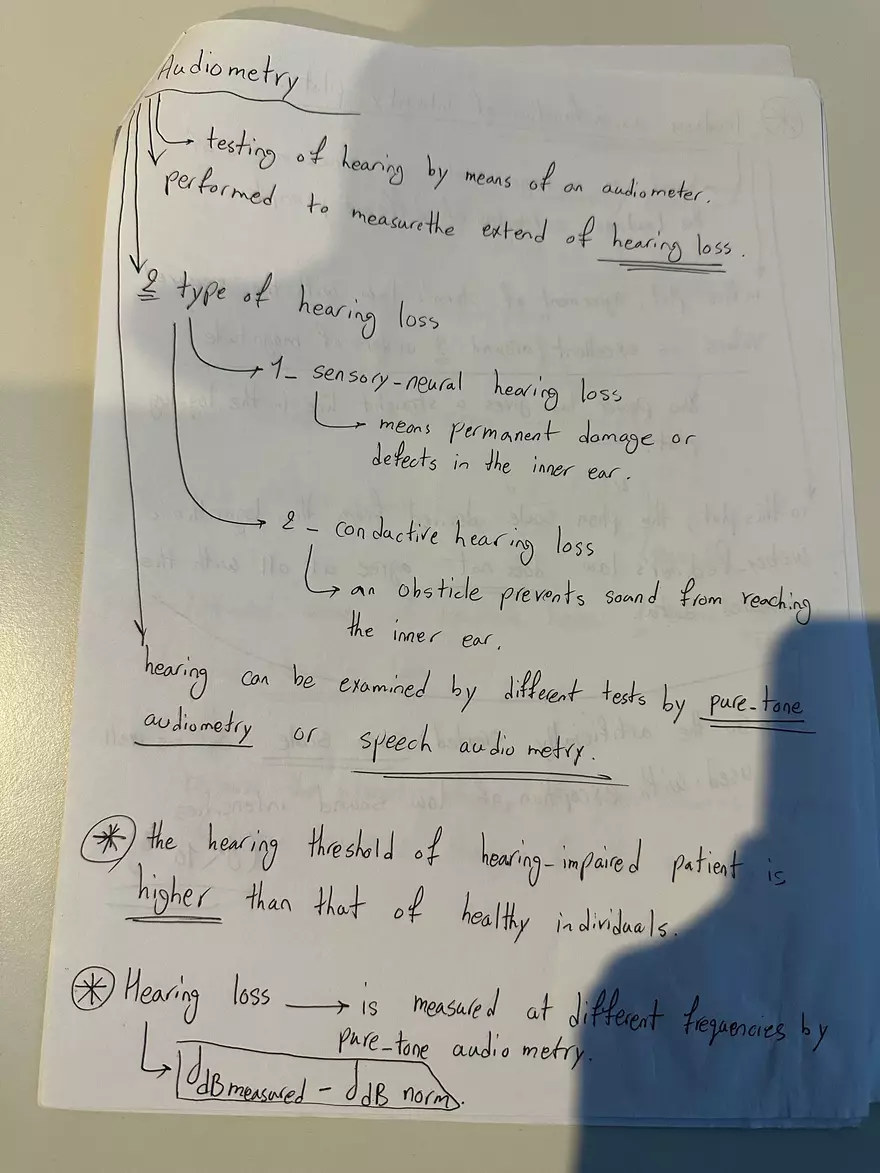 Audiometry
testing of hearing by means of an audiometer.
performed to measure the extend of hearing loss.
2 type of hearing loss
1- sensory-neural hearing loss
means permanent damage or
defects in the inner ear.
2- conductive hearing loss
an obsticle prevents sound from reaching
the inner ear.
hearing can be examined by different tests by pure-tone
audiometry or speech audiometry.
* the hearing threshold of hearing-impaired patient is
higher than that of healthy individuals.
* Hearing loss → is measured at different frequencies by
pure-tone audiometry.
dB measured - dB norm.